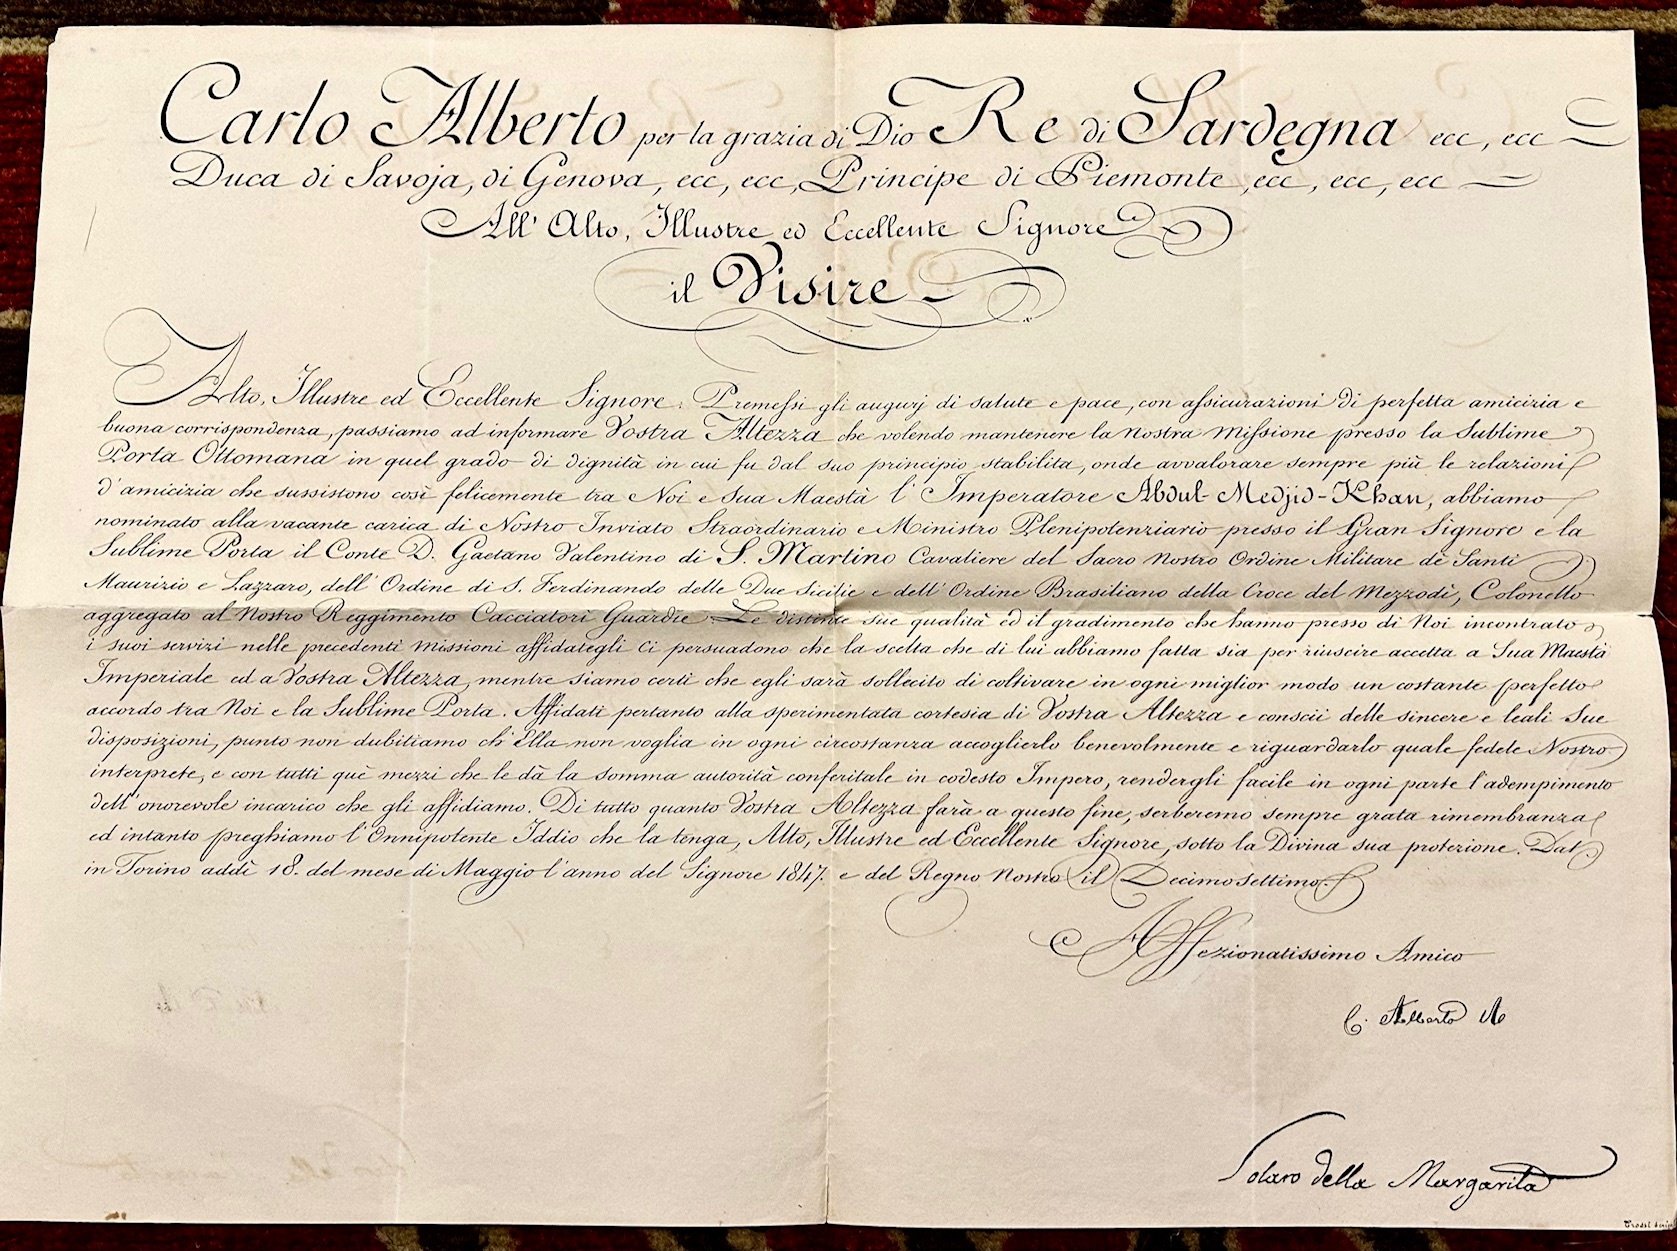 Carlo Alberto per la grazia di Dio Re di Sardegna ecc, ecc
Duca di Savoja, di Genova, ecc, ecc, Principe di Piemonte, ecc, ecc, ecc
All' Alto, Illustre ed Eccellente Signore
il Visire
Alto, Illustre ed Eccellente Signore. Premessi gli augurj di salute e pace, con assicurazioni di perfetta amicizia e
buona corrispondenza, passiamo ad informare Vostra Altezza che volendo mantenere la Nostra Missione presso la Sublime
Porta Ottomana in quel grado di dignità in cui fu dal suo principio stabilita, onde avvalorare sempre più le relazioni
d'amicizia che sussistono così felicemente tra Noi e Sua Maestà l'Imperatore Abdul-Medjid-Khan, abbiamo
nominato alla vacante carica di Nostro Inviato Straordinario e Ministro Plenipotenziario presso il Gran Signore e la
Sublime Porta il Conte D. Gaetano Valentino di S. Martino Cavaliere del Sacro Nostro Ordine Militare dè Santi
Maurizio e Lazzaro, dell'Ordine di S. Ferdinando delle Due Sicilie e dell'Ordine Brasiliano della Croce del Mezzodì, Colonello
aggregato al Nostro Reggimento Cacciatori Guardie. Le distinte sue qualità ed il gradimento che hanno presso di Noi incontrato
i suoi servizi nelle precedenti missioni affidategli ci persuadono che la scelta che di lui abbiamo fatta sia per riuscire accetta a Sua Maestà
Imperiale ed a Vostra Altezza, mentre siamo certi che egli sarà sollecito di coltivare in ogni miglior modo un costante perfetto
accordo tra Noi e la Sublime Porta. Affidati pertanto alla sperimentata cortesia di Vostra Altezza e conscii delle sincere e leali Sue
disposizioni, punto non dubitiamo ch'Ella non voglia in ogni circostanza accoglierlo benevolmente e riguardarlo quale fedele Nostro
interprete, e con tutti què mezzi che le dà la somma autorità conferitale in codesto Impero, rendergli facile in ogni parte l'adempimento
dell'onorevole incarico che gli affidiamo. Di tutto quanto Vostra Altezza farà a questo fine, serberemo sempre grata rimembranza
ed intanto preghiamo l'Onnipotente Iddio che la tenga, Alto, Illustre ed Eccellente Signore, sotto la Divina sua protezione. Dat.
in Torino addì 18. del mese di Maggio l'anno del Signore 1847. e del Regno Nostro il Decimosettimo.
Affezionatissimo Amico
C. Alberto
Solaro della Margarita